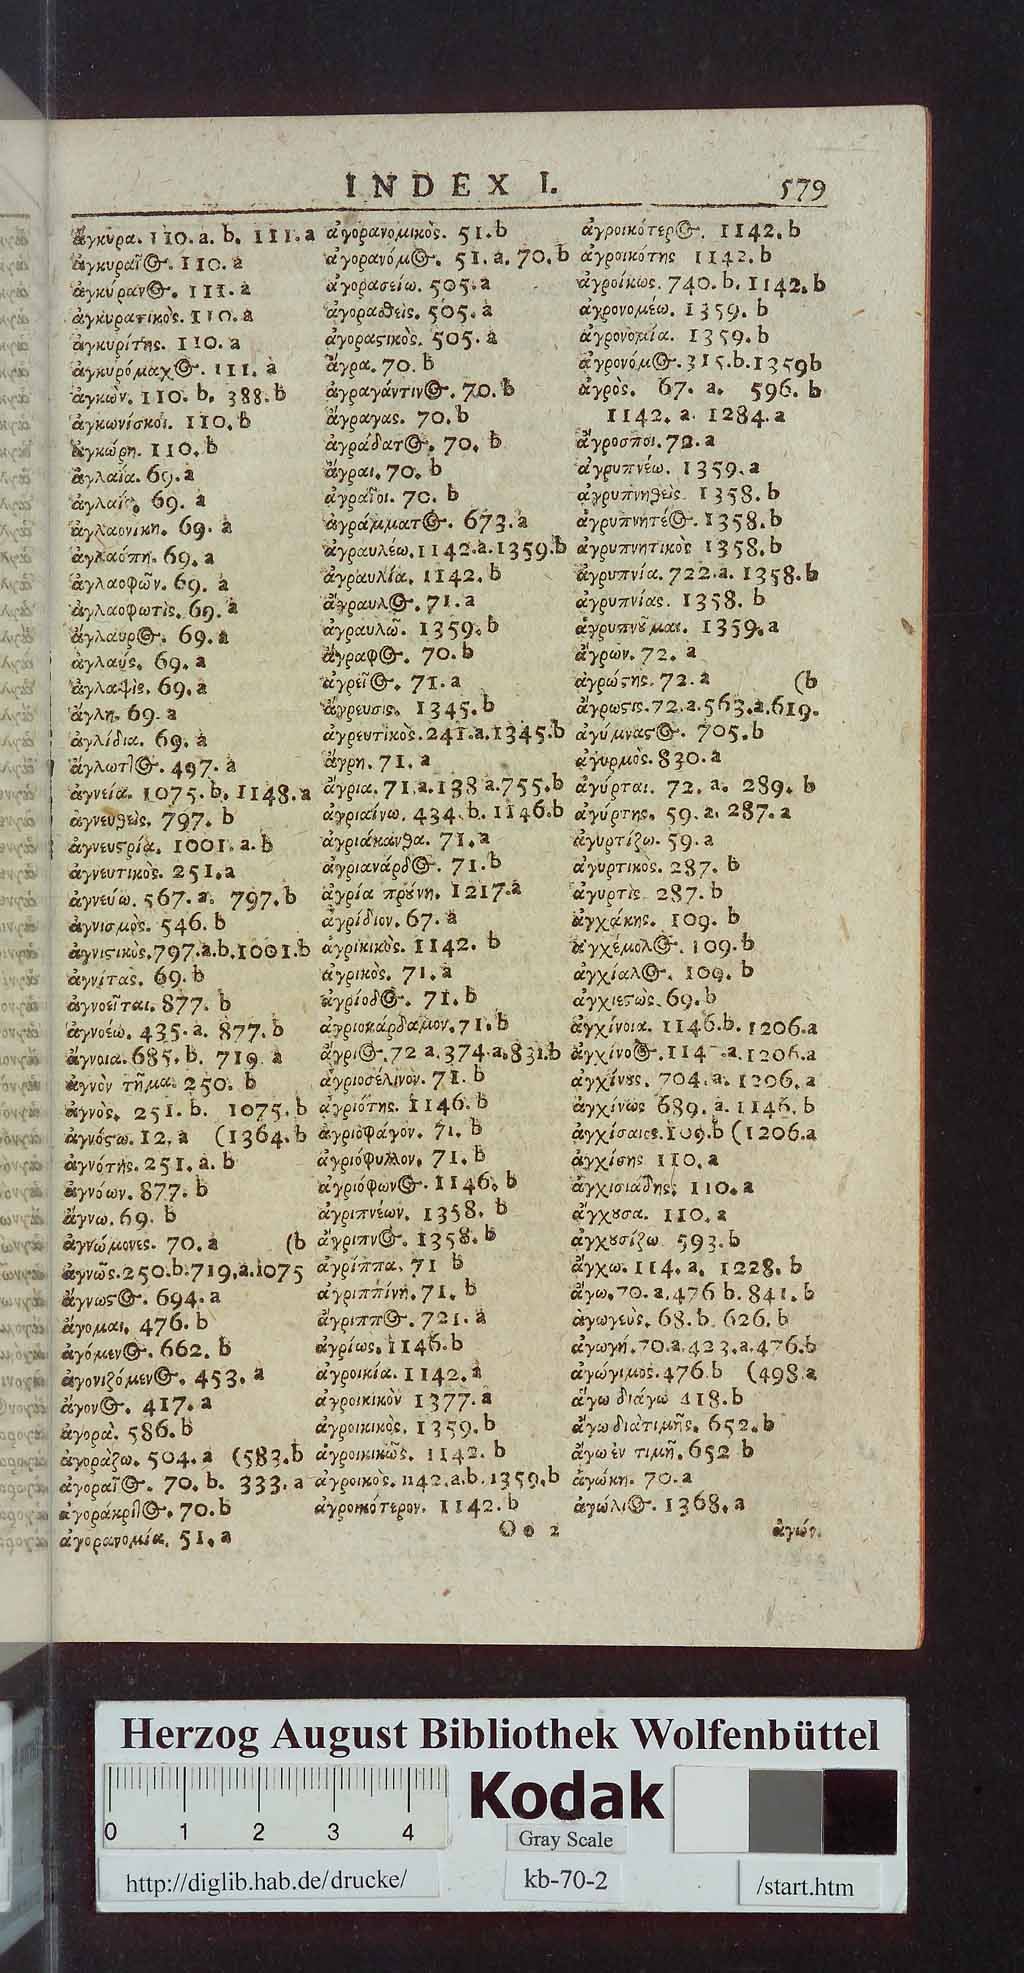 INDEX I. 579
ἄγκυρα. 110. a. b. 111. a
ἀγκυραῖος. 110. a
ἀγκύρανος. 111. a
ἀγκυρατικὸς. 110. a
ἀγκυρίτης. 110. a
ἀγκυρόμαχος. 111. a
ἀγκὼν. 110. b. 388. b
ἀγκωνίσκοι. 110. b
ἀγκώρη. 110. b
ἀγλαΐα. 69. a
69. a
ἀγλαονίκη. 69. a
ἀγλαόπη. 69. a
ἀγλαοφῶν. 69. a
ἀγλαοφωτὶς. 69. a
ἄγλαυρος. 69. a
ἀγλαύς. 69. a
ἀγλαψὶς. 69. a
ἄγλη. 69. a
ἀγλίδια. 69. a
ἄγλωττος. 497. a
ἁγνεία. 1075. b. 1148. a
ἁγνευθεὶς. 797. b
ἁγνευτρία. 1001. a. b
ἁγνευτικὸς. 251. a
ἁγνεύω. 567. a. 797. b
ἁγνισμὸς. 546. b
ἁγνιστικὸς. 797. a. b. 1001. b
ἀγνίτας. 69. b
ἀγνοεῖται. 877. b
ἀγνοέω. 435. a. 877. b
ἄγνοια. 685. b. 719. a
ἁγνὸν τῆμα. 250. b
ἁγνὸς. 251. b. 1075. b
ἀγνόςω. 12. a (1364. b
ἁγνότης. 251. a. b
ἀγνόων. 877. b
ἄγνω. 69. b
ἀγνώμονες. 70. a (b
ἀγνῶς. 250. b. 719. a. 1075
ἄγνωστος. 694. a
ἄγομαι. 476. b
ἀγόμενος. 662. b
ἀγονιζόμενος. 453. a
ἄγονος. 417. a
ἀγορὰ. 586. b
ἀγοράζω. 504. a (583. b
ἀγοραῖος. 70. b. 333. a
ἀγοράκριτος. 70. b
ἀγορανομία. 51. a
ἀγορανομικὸς. 51. b
ἀγορανόμος. 51. a. 70. b
ἀγορασείω. 505. a
ἀγορασθεὶς. 505. a
ἀγοραστικὸς. 505. a
ἄγρα. 70. b
ἀγραγάντινος. 70. b
ἄγραγας. 70. b
ἀγράδατος. 70. b
ἄγραι. 70. b
ἀγραῖοι. 70. b
ἀγράμματος. 673. a
ἀγραυλέω. 1142. a. 1359. b
ἀγραυλία. 1142. b
ἄγραυλος. 71. a
ἀγραυλῶ. 1359. b
ἄγραφος. 70. b
ἀγρεῖος. 71. a
ἄγρευσις. 1345. b
ἀγρευτικὸς. 241. a. 1345. b
ἄγρη. 71. a
ἄγρια. 71. a. 138 a. 755. b
ἀγριαίνω. 434. b. 1146. b
ἀγριάκανθα. 71. a
ἀγριανάρδος. 71. b
ἀγρία πρύνη. 1217. a
ἀγρίδιον. 67. a
ἀγρικικὸς. 1142. b
ἀγρικὸς. 71. a
ἀγρίοδος. 71. b
ἀγριοκάρδαμον. 71. b
ἄγριος. 72 a. 374. a. 831. b
ἀγριοσέλινον. 71. b
ἀγριότης. 1146. b
ἀγριόφαγον. 71. b
ἀγριόφυλλον. 71. b
ἀγριόφωνος. 1146. b
ἀγριπνέων. 1358. b
ἄγριπνος. 1358. b
ἀγρίππα. 71 b
ἀγριππίνη. 71. b
ἄγριππος. 721. a
ἀγρίως. 1146. b
ἀγροικία. 1142. a
ἀγροικικὸν 1377. a
ἀγροικικὸς. 1359. b
ἀγροικικῶς. 1142. b
ἀγροικος. 1142. a. b. 1359. b
ἀγροικότερον. 1142. b
ἀγροικότερος. 1142. b
ἀγροικότης 1142. b
ἀγροίκως. 740. b. 1142. b
ἀγρονομέω. 1359. b
ἀγρονομία. 1359. b
ἀγρονόμος. 315. b. 1359b
ἀγρὸς. 67. a. 596. b
1142. a. 1284. a
ἄγροσποι. 72. a
ἀγρυπνέω. 1359. a
ἀγρυπνηθεὶς. 1358. b
ἀγρυπνητέος. 1358. b
ἀγρυπνητικὸς 1358. b
ἀγρυπνία. 722. a. 1358. b
ἀγρυπνίας. 1358. b
ἀγρυπνοῦμαι. 1359. a
ἄγρων. 72. a
ἀγρώστης. 72. a (b
ἄγρωστις. 72. a. 563. a. 619.
ἀγύμναστος. 705. b
ἀγυρμὸς. 830. a
ἀγύρται. 72. a. 289. b
ἀγύρτης. 59. a. 287. a
ἀγυρτίζω. 59. a
ἀγυρτικὸς. 287. b
ἀγυρτὶς 287. b
ἀγχάκης. 109. b
ἀγχέμολος. 109. b
ἀγχίαλος. 109. b
ἀγχιεςὼς. 69. b
ἀγχίνοια. 1146. b. 1206. a
ἀγχίνοος. a. 1206. a
ἀγχίνους. 704. a. 1206. a
ἀγχίνως 689. a. 1146. b
109. b (1206. a
ἀγχίσης 110. a
ἀγχισιάδης. 110. a
ἄγχουσα. 110. a
ἀγχουσίζω 593. b
ἄγχω. 114. a. 1228. b
ἄγω. 70. a. 476 b. 841. b
ἀγωγεὺς. 68. b. 626. b
ἀγωγή. 70. a. 423. a. 476. b
ἀγώγιμος. 476. b (498. a
ἄγω διάγω 418. b
ἄγω διὰ τιμῆς. 652. b
ἄγω ἐν τιμῇ. 652 b
ἀγώκη. 70. a
ἀγώλιος. 1368. a
Oo 2 ἀγών.
Herzog August Bibliothek Wolfenbüttel
0 1 2 3 4
Kodak
Gray Scale
http://diglib.hab.de/drucke/ kb-70-2 /start.htm